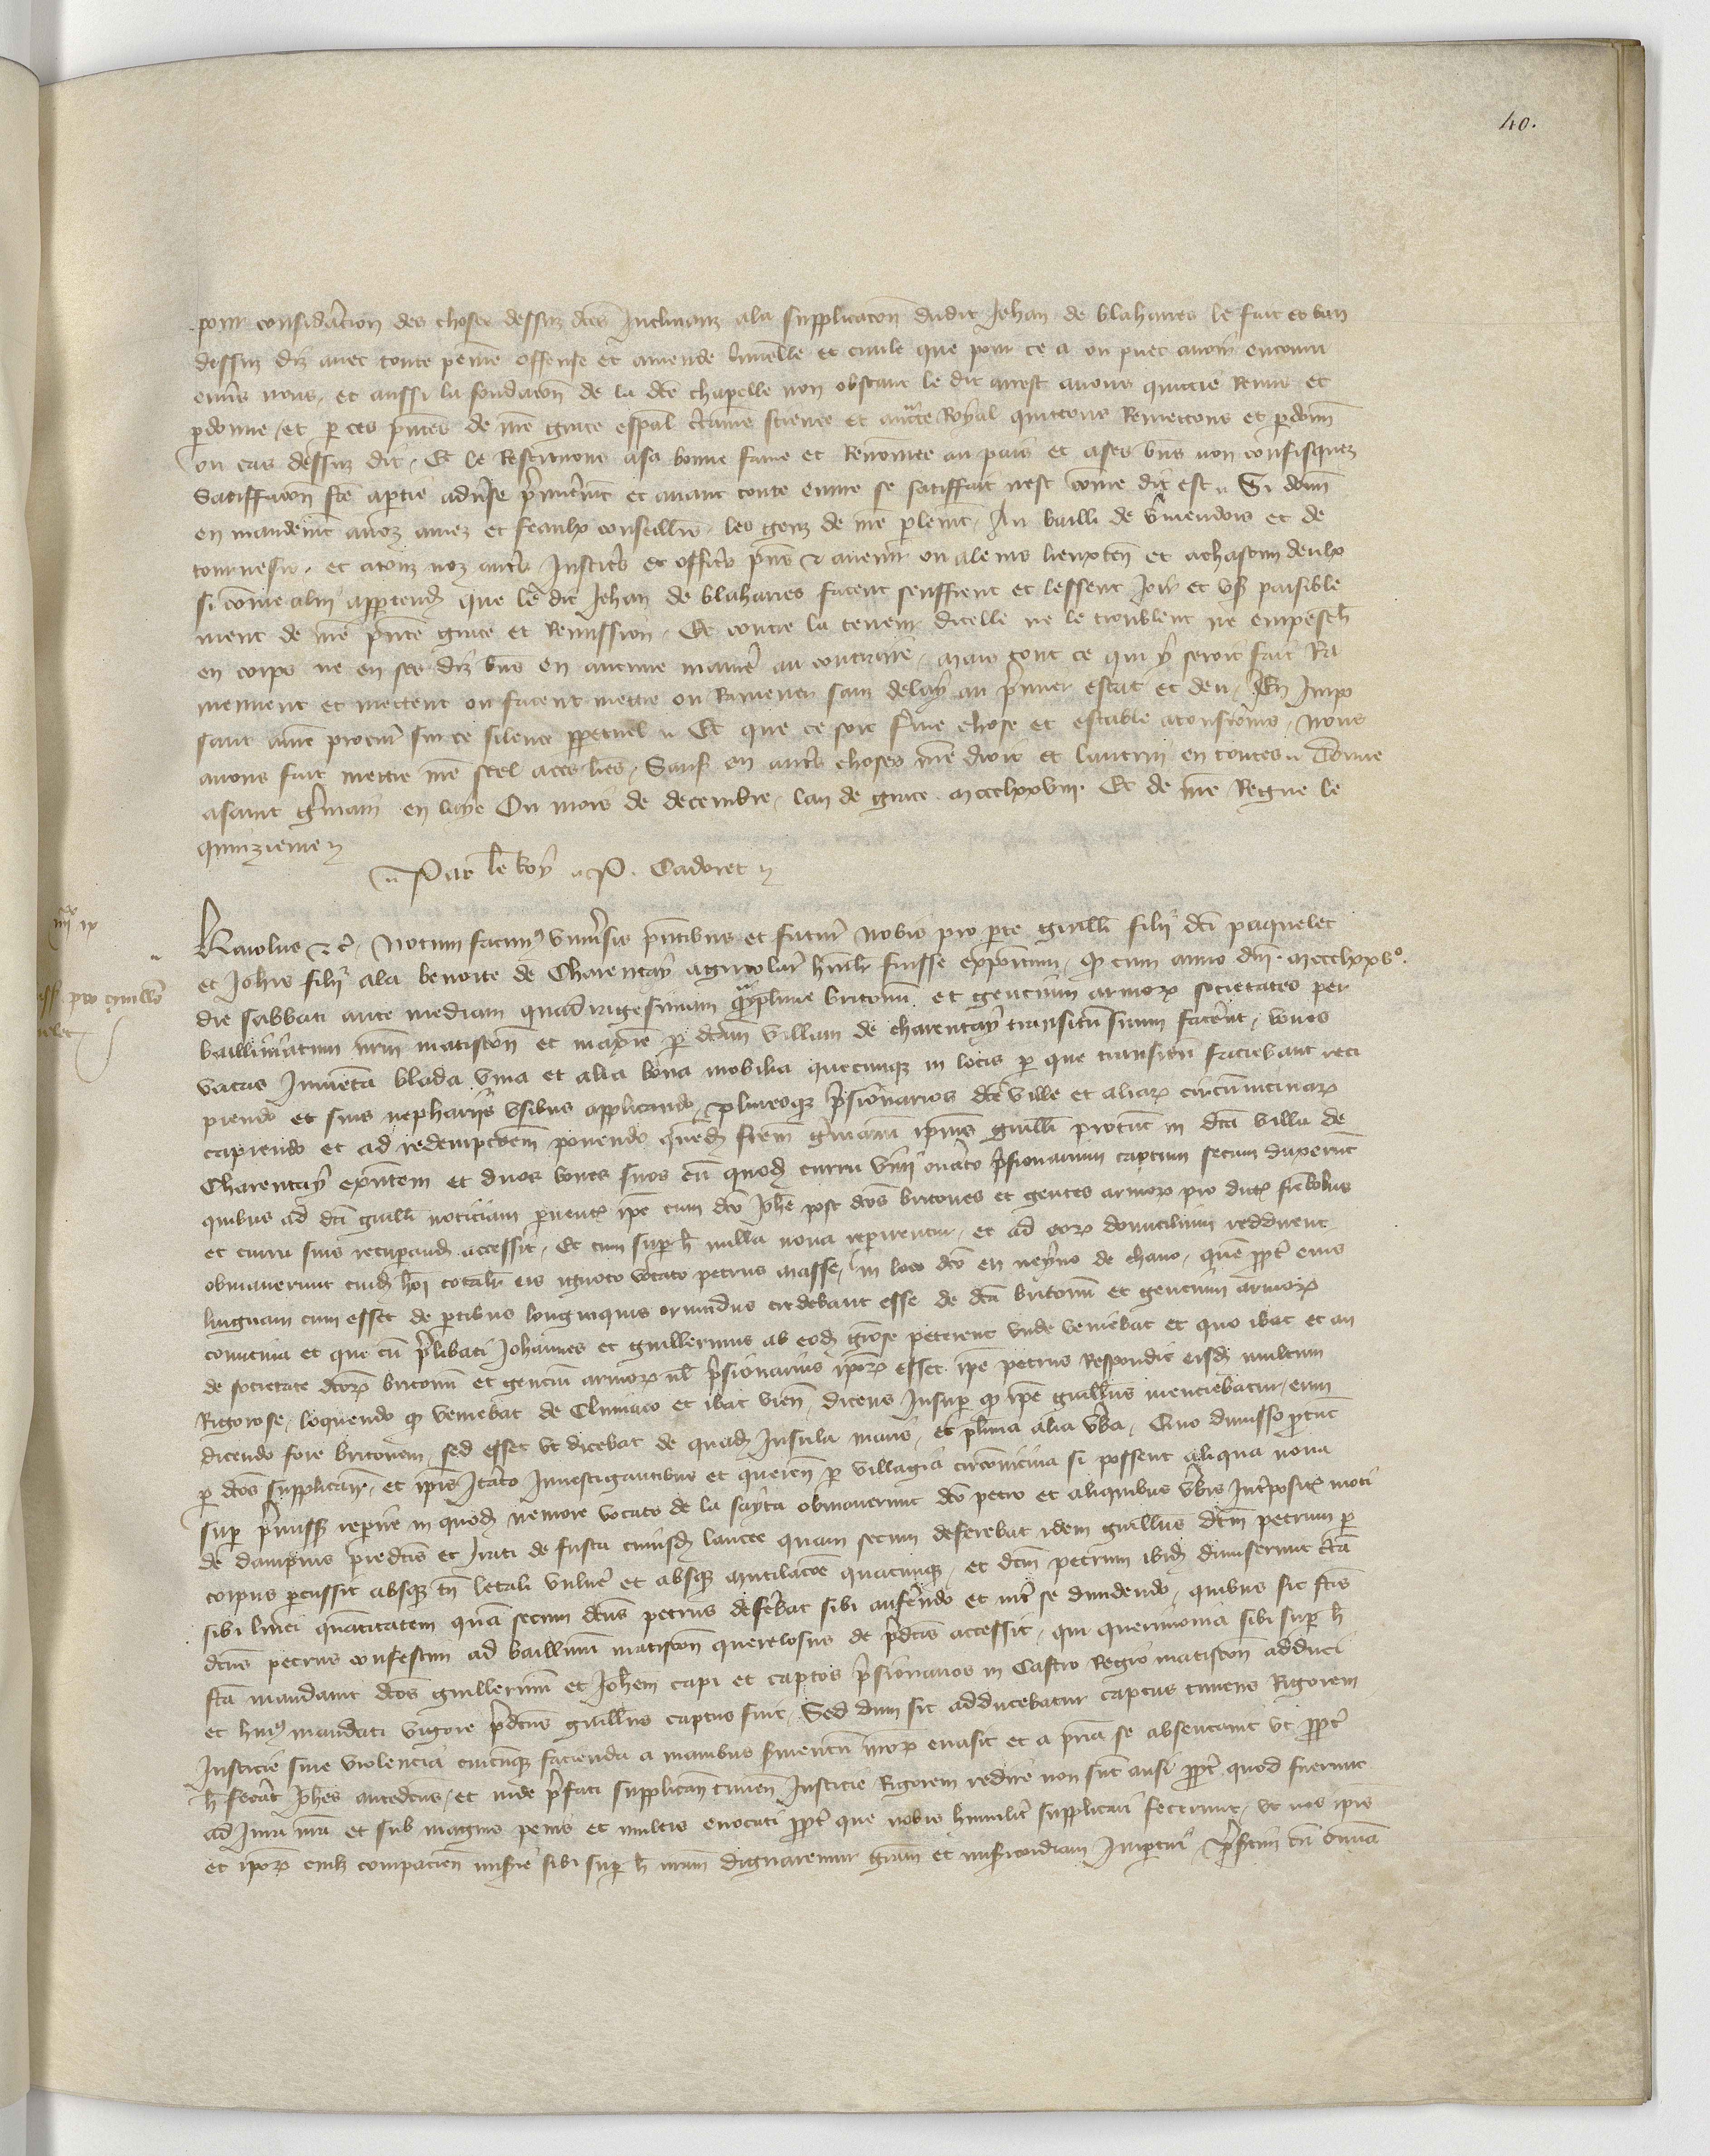 40.
pour consideracion des choses dessus dictes Inclinans ala supplicacion dudit Jehan de blaharies le fait et ban
dessus diz avec toute peine offense et amende criminelle et civile que pour ce a ou puet avoir encouru
envers nous, et aussi la fondacion de la dicte chapelle non obstant le dit arrest avons quictie Remis et
pardonne, et par ces presentes de nostre grace especial certainne science et auctorite Royal quictons Remettons et pardonnons
ou cas dessus dit, Et le Restituons asa bonne fame et Renommee au pais et ases biens non confisquez
Satisfacion faicte apartie premierement et avant toute euvre se satisfait nest comme dit est Si donnons
en mandement anoz amez et feaulx conseilliers les gens de nostre parlement, Au bailli de vermendois et de
tournesis, et atous noz autres Justiciers et officiers presens et avenir ou aleurs lieuxtenans et achascun deulx
si comme alui appartendra que le dit Jehan de blaharies facent seuffrent et lessent Joir et user paisible
ment de nostre presente grace et Remission, Et contre la teneur dicelle ne le troublent ne empeschent
en corps ne en ses diz biens en aucune maniere au contraire, mais tout ce qui y seroit fait Ra
mennent et mettent ou facent mettre ou Ramener sanz delay au premier estat et deu, En Impo
sant anostre procureur sur ce silence perpetuel Et que ce soit ferme chose et estable atousiours, Nous
avons fait mettre nostre scel aces lettres, Sauf en autres choses nostre droit et lautrui en toutes Donne
asaint germain en laye Ou mois de decembre, lan de grace mccclxxviij. Et de nostre Regne le
quinzieme
Par le Roy P. Cadoret
iiijxx ix
Karolus etc. Notum facimus universis presentibus et futuris Nobis pro parte guillelmi filii dicti paquelet
et Johannis filii ala benoite de Charentay agricolarum humiliter fuisse expositum, quod cum anno domini mccclxxvo.
die sabbati ante mediam quadragesimam quamplures britonum et gencium armorum societates per
bailliviatum nostrum matisconensem et maxime per dictam villam de charentay transitum suum facerent, boves
vacas Jumenta blada vina et alia bona mobilia quecunque in locis per que transitum faciebant reci
piendo et suis nephariis usibus applicando, pluresque prisionarios dicte ville et aliarum circumvicinarum
capiendo et ad redempcionem ponendo quendam fratrem germanum ipsius guillelmi protunc in dicta villa de
Charentay existentem et duos boves suos cum quodam curru vini onerato prisionarium captum secum duxerunt
quibus ad dicti guillelmi noticiam perventis ipse cum dicto Johanne post dictos britones et gentes armorum pro dictis fratre bobus
et curru suis recuperandis accessit, Et cum super hoc nulla nova reperirentur, et ad eorum domicilium reddirent
obviaverunt cuidam homini totaliter eis ignoto vocato petrus masse, in loco dicto en neyrno de chavo, quem propter eius
linguam cum esset de partibus longinquis oriundus credebant esse de dicta britonum et gencium armorum
comitiva et que cum prelibati Johannes et guillermus ab eodem graciose peterent unde veniebat et quo ibat et an
de societate dictorum britonum et gencium armorum vel prisionarius ipsorum esset. ipse petrus Respondit eisdem multum
Rigorose, loquendo quod veniebat de Cluniaco et ibat viennam, dicens Insuper quod ipse guillermus menciebatur, eum
dicendo fore britonem, sed esset ut dicebat de quadam Insula maris, et plurima alia verba, Quo dimisso protunc
per dictos supplicantes, et ipsis Iterato Investigantibus et querentibus per villagia circumvicina si possent aliqua nova
super premissis reperire in quodam nemore vocato de la sayta obviaverunt dicto petro et aliquibus verbis Interpositis moti
de dampnis predictis et Irati de fusta cuiusdam lancee quam secum deferebat idem guillermus dictum petrum per
corpus percussit absque tamen letali vulnere et absque mutilacione quacunque, et dictum petrum ibidem dimiserunt certam
sibi linei quantitatem quam secum dictus petrus deferebat sibi auferendo et inter se dividendo, quibus sic factis
dictus petrus confestim ad baillivum matisconensem querelosus de predictis accessit, qui querimonia sibi super hoc
facta mandavit dictos guillermum et Johannem capi et captos prisionarios in Castro Regio matisconensi adduci
et huius mandati vigore predictus guillermus captus fuit, Sed dum sic adducebatur captus timens Rigorem
Justicie sine violencia cuicunque facienda a manibus servientum nostrorum evasit et a patria se absentavit ut propter
hoc fecerat Johannes antedictus, et inde prefati supplicantes timentes Justicie Rigorem redire non sunt ausi propter quod fuerunt
ad Jura nostra et sub magnis penis et multis evocati propter que nobis humiliter supplicari fecerunt, ut nos ipsis
et ipsorum cuilibet compacientes miserie sibi super hoc nostram dignaremur graciam et misericordiam Impertiri, presertim cum omnia